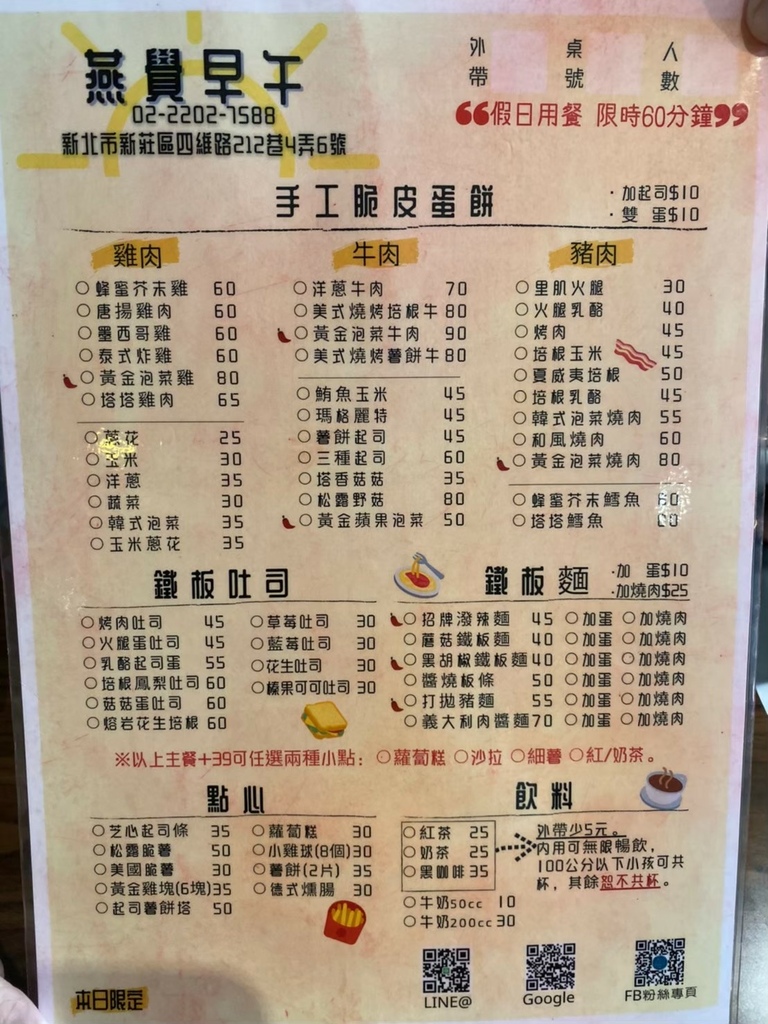 燕覺早午
02-2202-7588
新北市新莊區四維路212巷4弄6號
外帶 桌號 人數
❝假日用餐 限時60分鐘❞
手工脆皮蛋餅
·加起司$10
·雙 蛋$10
雞肉
○蜂蜜芥末雞 60
○唐揚雞肉 60
○墨西哥雞 60
○泰式炸雞 60
○黃金泡菜雞 80
○塔塔雞肉 65
○蔥花 25
○玉米 30
○洋蔥 35
○蔬菜 30
○韓式泡菜 35
○玉米蔥花 35
牛肉
○洋蔥牛肉 70
○美式燒烤培根牛 80
○黃金泡菜牛肉 90
○美式燒烤薯餅牛 80
○鮪魚玉米 45
○瑪格麗特 45
○薯餅起司 45
○三種起司 60
○塔香菇菇 35
○松露野菇 80
○黃金蘋果泡菜 50
豬肉
○里肌火腿 30
○火腿乳酪 40
○烤肉 45
○培根玉米 45
○夏威夷培根 50
○培根乳酪 45
○韓式泡菜燒肉 55
○和風燒肉 60
○黃金泡菜燒肉 80
○蜂蜜芥末鱈魚
○塔塔鱈魚
鐵板吐司
○烤肉吐司 45
○火腿蛋吐司 45
○乳酪起司蛋 55
○培根鳳梨吐司 60
○菇菇蛋吐司 60
○熔岩花生培根 60
○草莓吐司 30
○藍莓吐司 30
○花生吐司 30
○榛果可可吐司 30
鐵板麵
·加 蛋$10
·加燒肉$25
○招牌潑辣麵 45 ○加蛋 ○加燒肉
○蘑菇鐵板麵 40 ○加蛋 ○加燒肉
○黑胡椒鐵板麵 40 ○加蛋 ○加燒肉
○醬燒板條 50 ○加蛋 ○加燒肉
○打拋豬麵 55 ○加蛋 ○加燒肉
○義大利肉醬麵 70 ○加蛋 ○加燒肉
※以上主餐+39可任選兩種小點：○蘿蔔糕 ○沙拉 ○細薯 ○紅/奶茶。
點心
○芝心起司條 35
○松露脆薯 50
○美國脆薯 30
○黃金雞塊(6塊) 35
○起司薯餅塔 50
○蘿蔔糕 30
○小雞球(8個) 30
○薯餅(2片) 35
○德式燻腸 30
飲料
○紅茶 25
○奶茶 25
○黑咖啡 35
外帶少5元。
內用可無限暢飲，
100公分以下小孩可共
杯，其餘恕不共杯。
○牛奶50cc 10
○牛奶200cc 30
本日限定
LINE@
Google
FB粉絲專頁